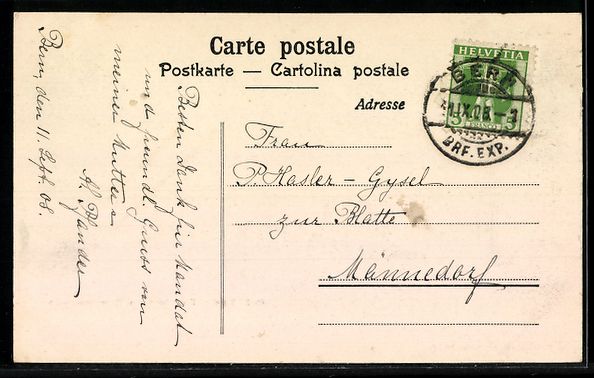 Carte postale
Postkarte — Cartolina postale
Adresse
HELVETIA
5 FRANCO 5
BERN
11.IX.08.–3
BRF. EXP.
Frau
P. Hasler – Gysel
zur Blatte
Männedorf
Bern, den 11. Sept. 08.
Besten Dank für Mandat
und freundl. Gruss von
meiner Mutter
A. Pfander